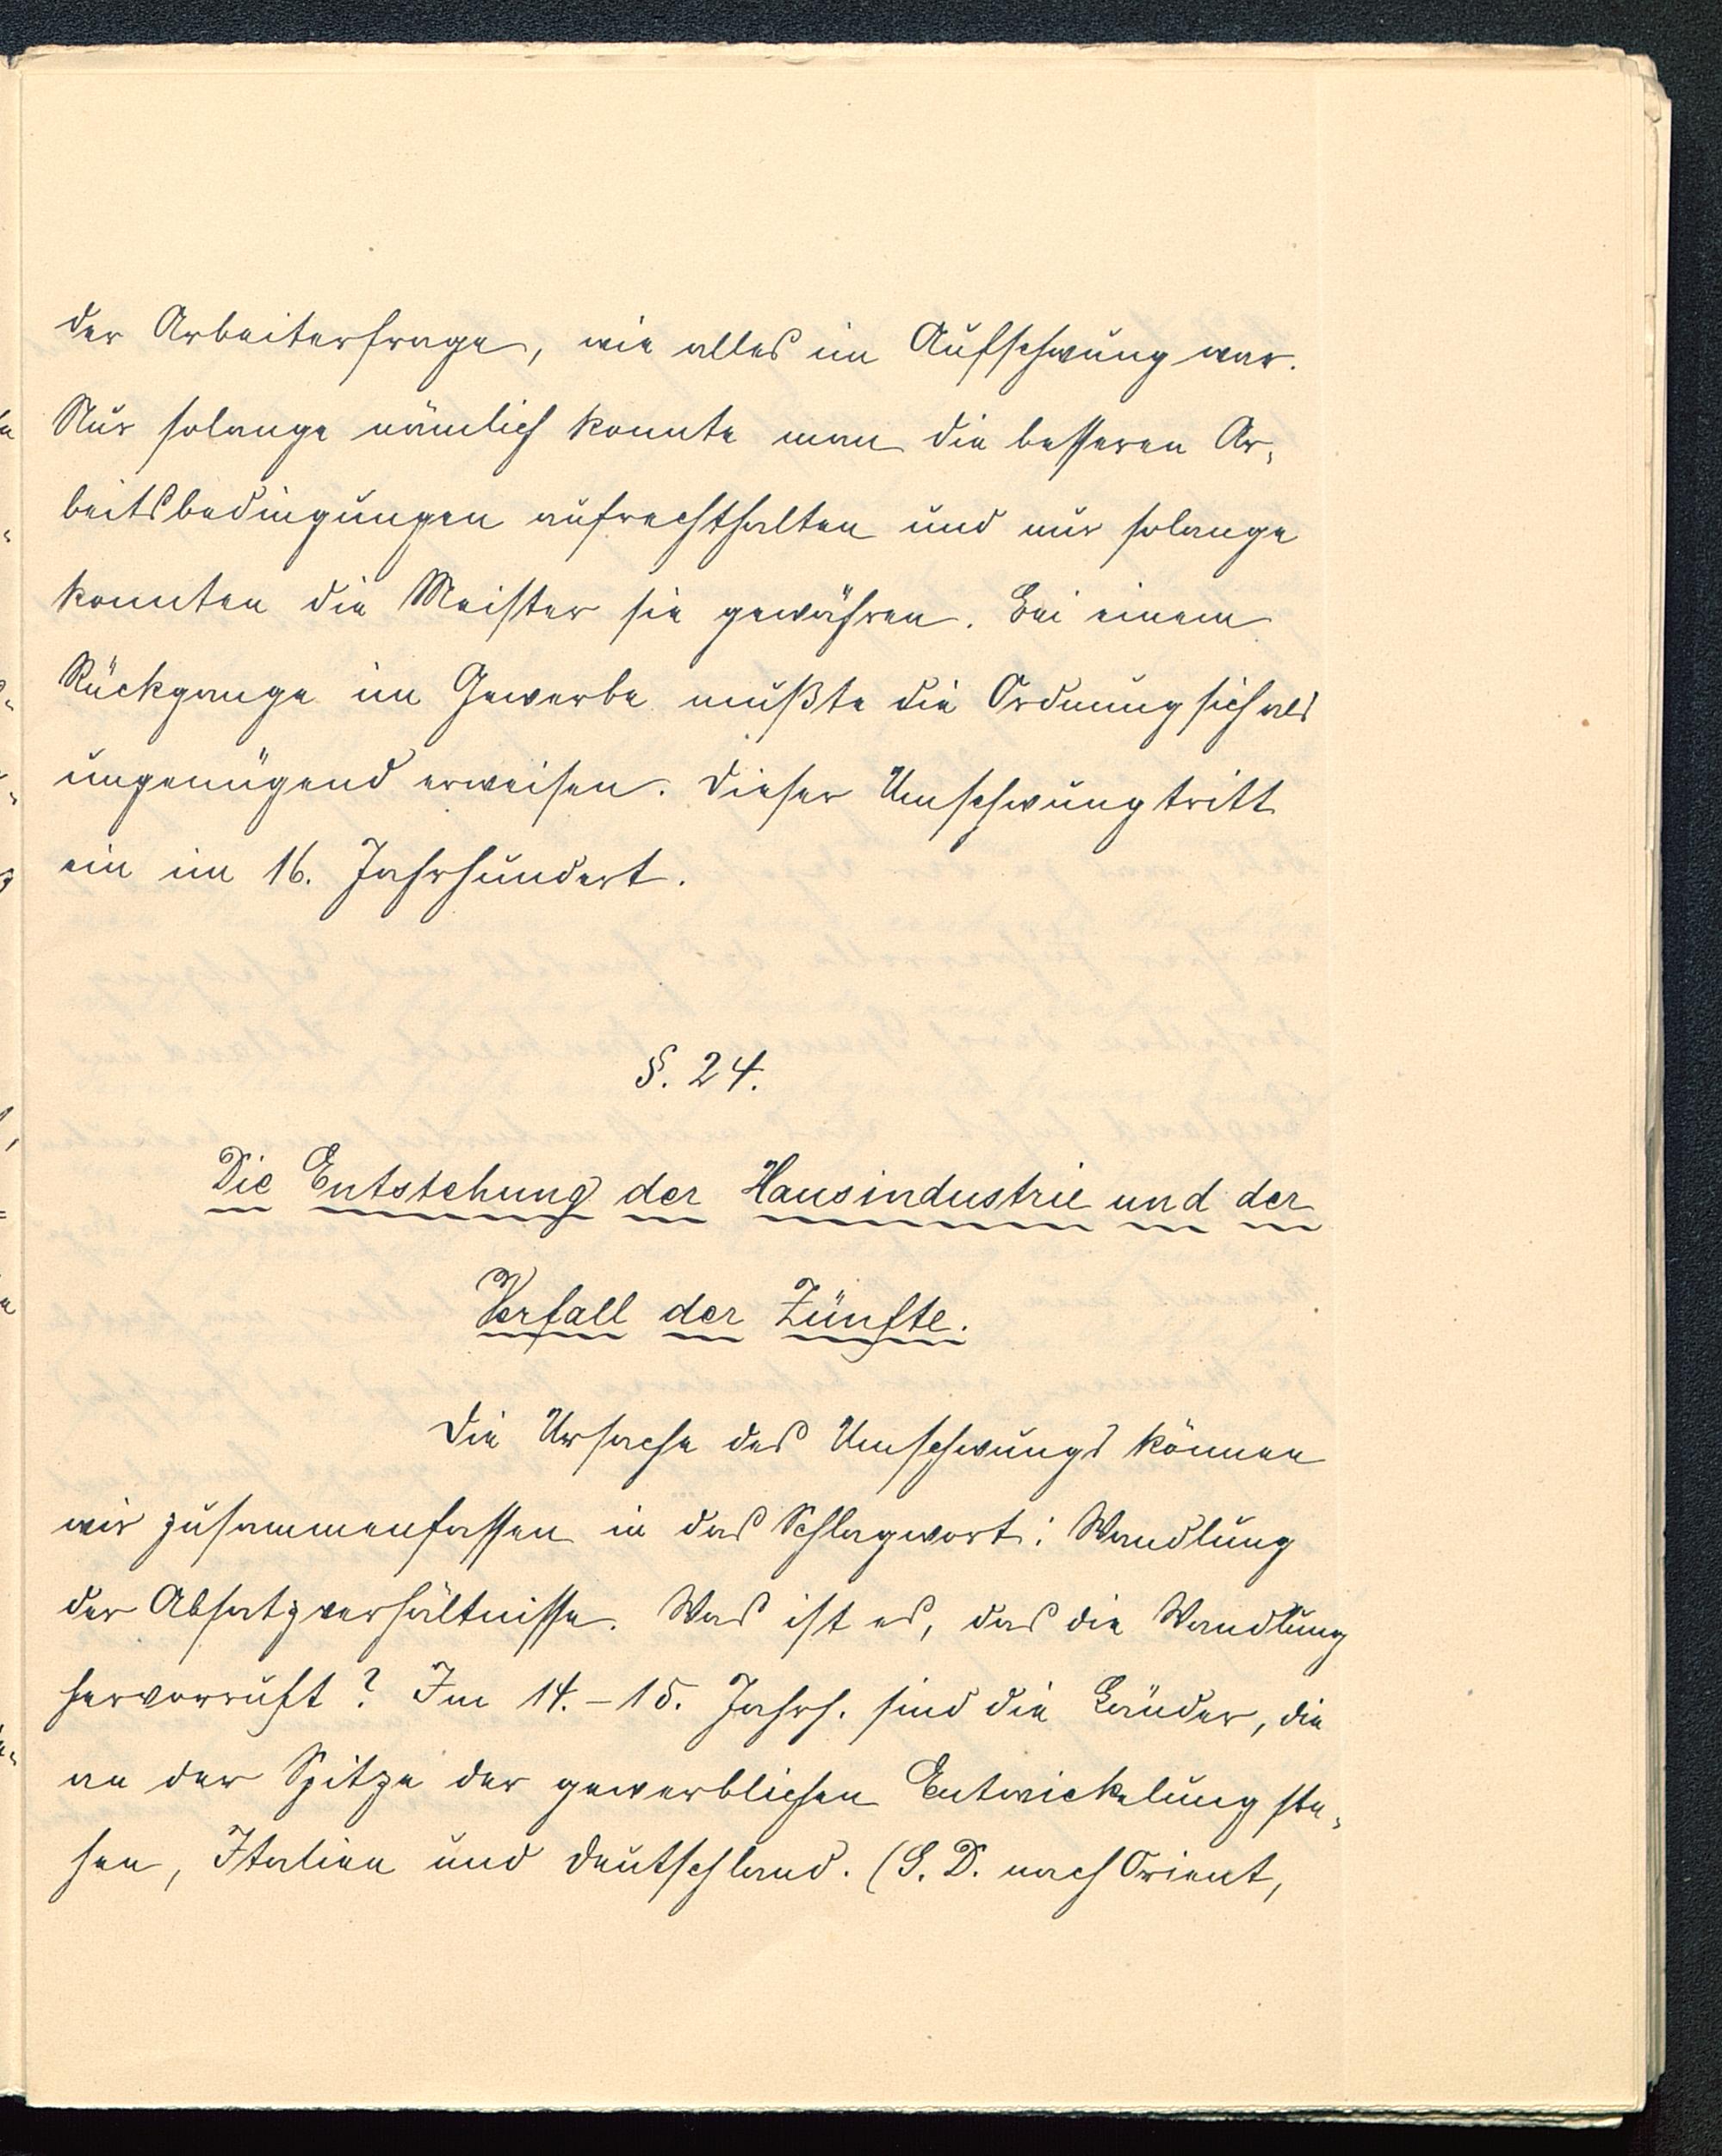 der Arbeiterfrage, wie alles im Aufschwung war.
Nur solange nämlich konnte man die besseren Ar-
beitsbedingungen aufrechthalten und nur solange
konnten die Meister sie gewähren. Bei einem
Rückgange im Gewerbe mußte die Ordnung sich als
ungenügend erweisen. Dieser Umschwung tritt
ein im 16. Jahrhundert.
§. 24.
Die Entstehung der Hausindustrie und der
Verfall der Zünfte.
Die Ursache des Umschwungs können
wir zusammenfassen in das Schlagwort: Wandlung
der Absatzverhältnisse. Was ist es, das die Wandlung
hervorruft? Im 14.-15. Jahrh. sind die Länder, die
an der Spitze der gewerblichen Entwickelung ste-
hen, Italien und Deutschland. (S. D. nach Orient,